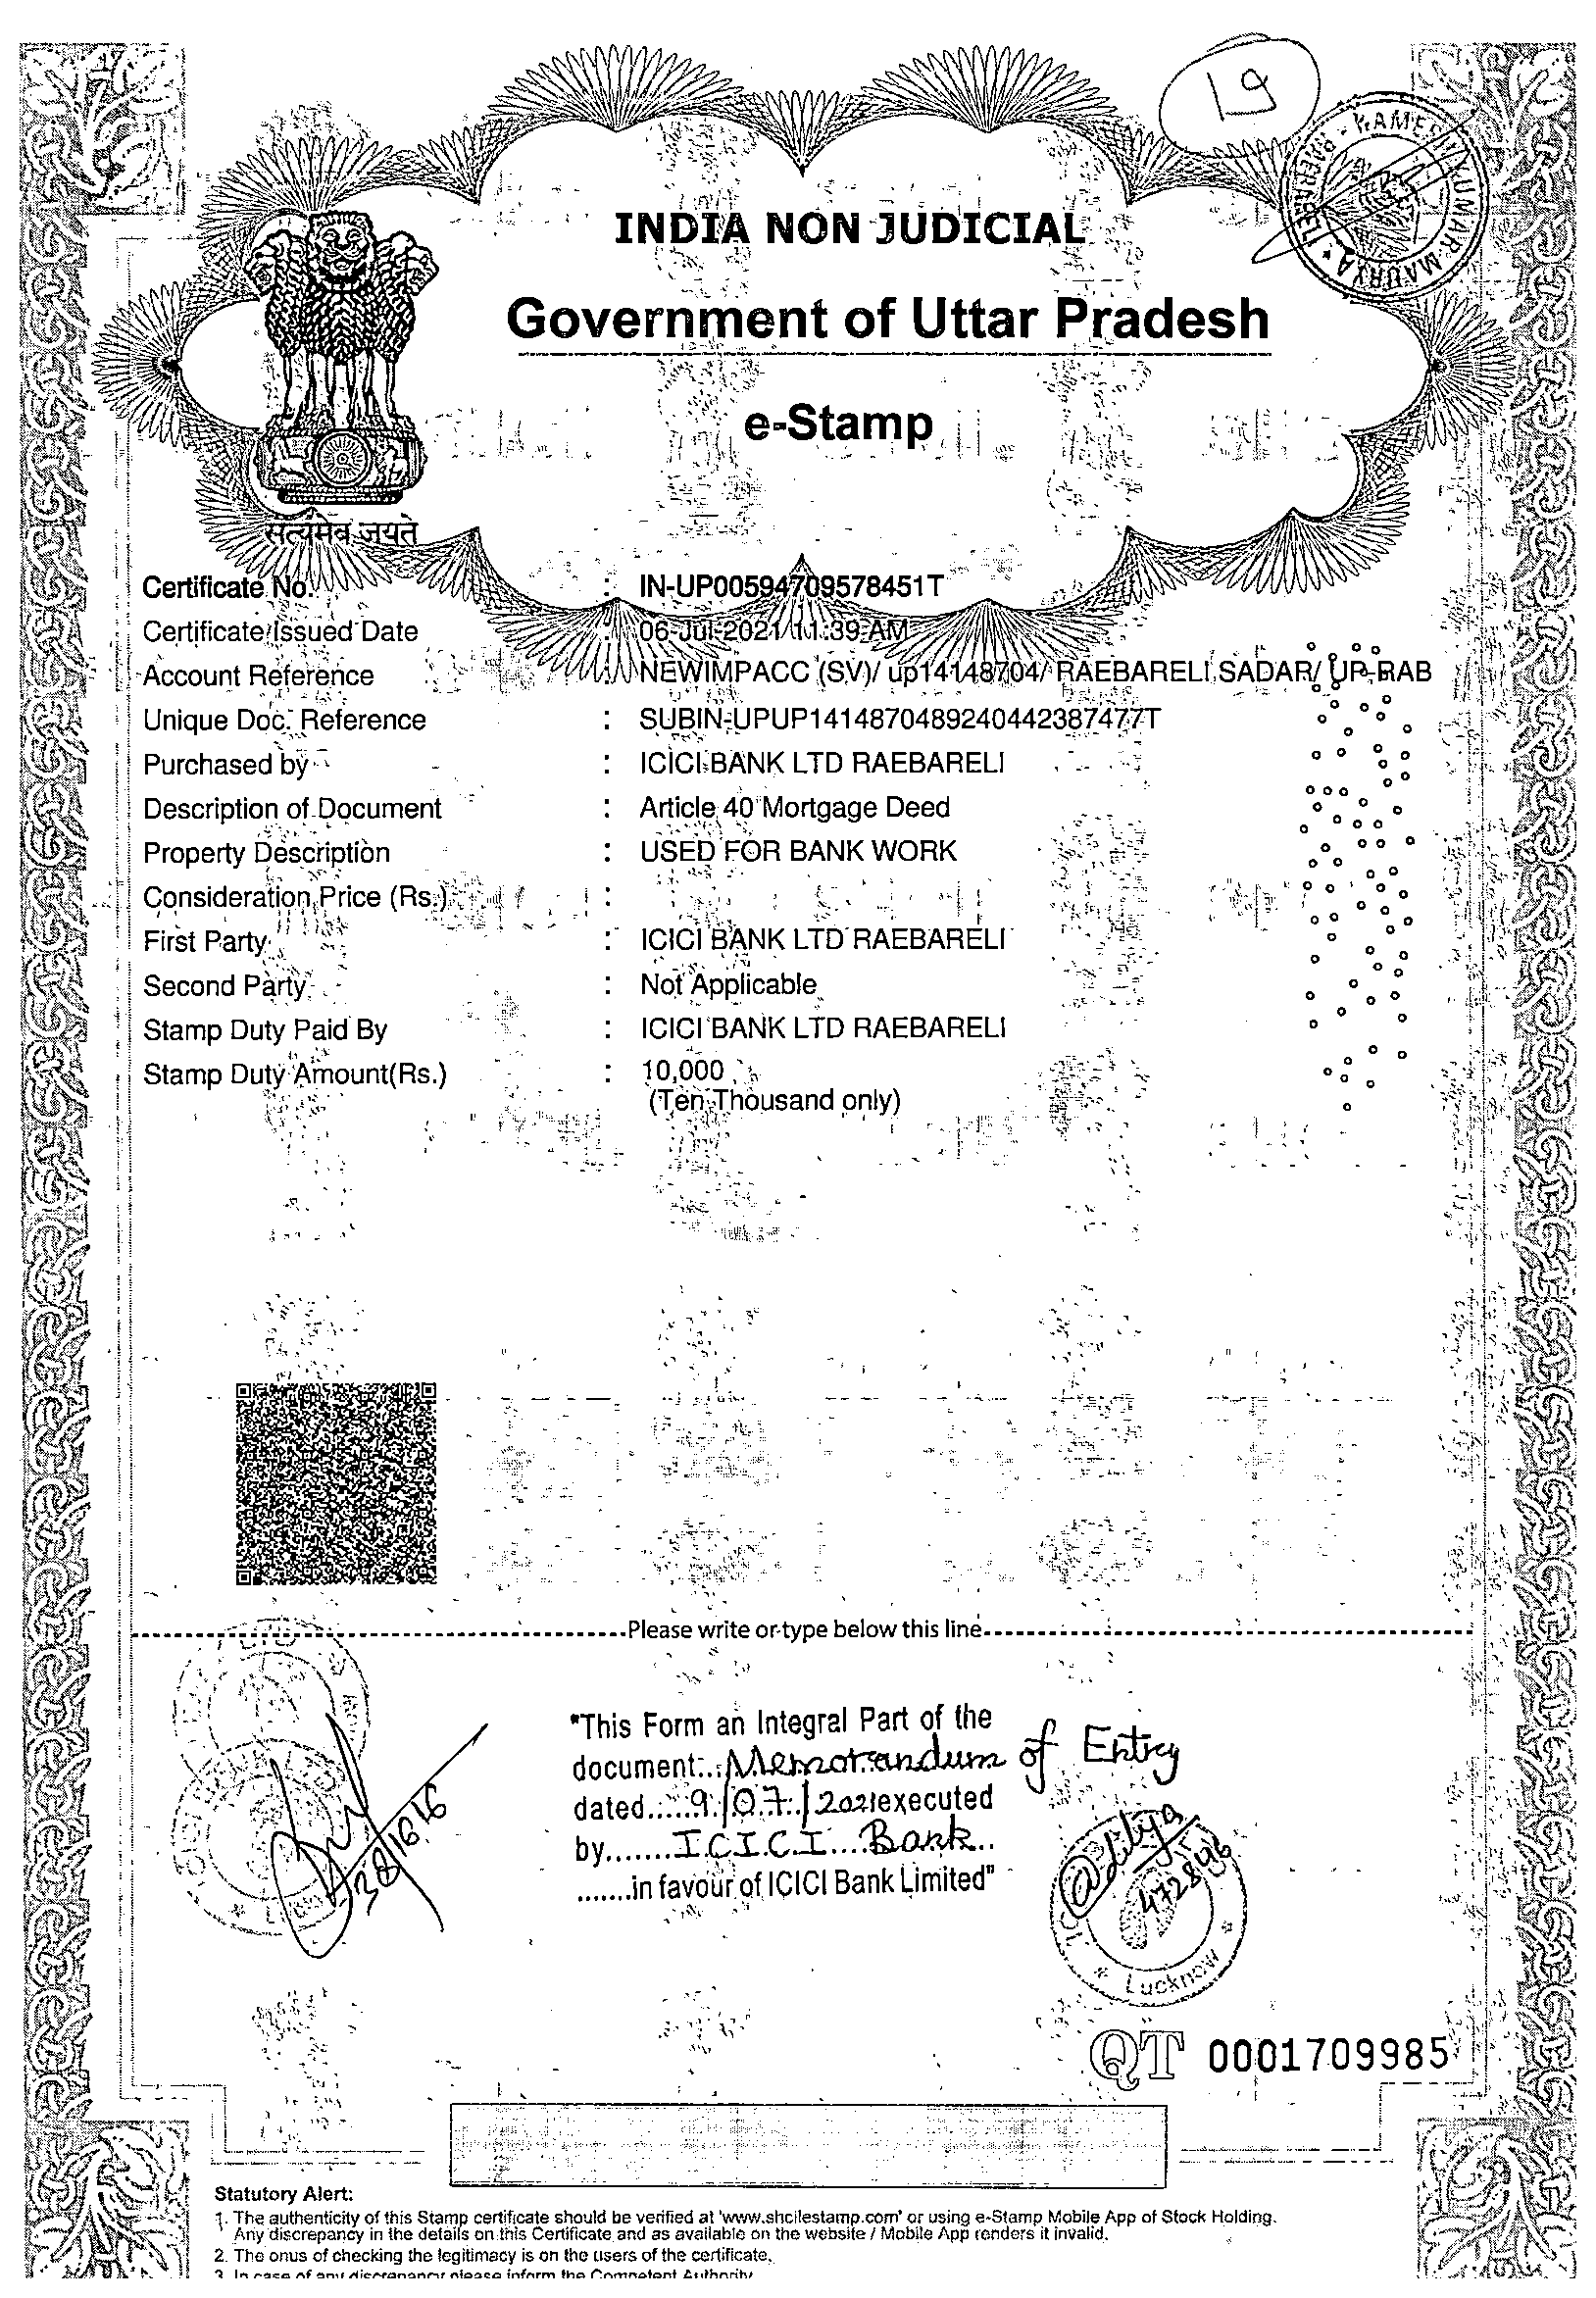 19
KAMESH KUMAR MAURYA
INDIA NON JUDICIAL
Government of Uttar Pradesh
e-Stamp
सत्यमेव जयते
Certificate No. : IN-UP00594709578451T
Certificate Issued Date : 06-Jul-2021 11:39 AM
Account Reference : NEWIMPACC (SV)/ up14148704/ RAEBARELI SADAR/ UP-RAB
Unique Doc. Reference : SUBIN-UPUP1414870489240442387477T
Purchased by : ICICI BANK LTD RAEBARELI
Description of Document : Article 40 Mortgage Deed
Property Description : USED FOR BANK WORK
Consideration Price (Rs.) :
First Party : ICICI BANK LTD RAEBARELI
Second Party : Not Applicable
Stamp Duty Paid By : ICICI BANK LTD RAEBARELI
Stamp Duty Amount(Rs.) : 10,000
(Ten Thousand only)
Please write or type below this line
"This Form an Integral Part of the
document:.:Memorandum of Entry
dated.....9/07/2021executed
by.......I.C.I.C.I....Bank..
.......in favour of ICICI Bank Limited"
381616
@ditya
472846
Lucknow
QT 0001709985
Statutory Alert:
1. The authenticity of this Stamp certificate should be verified at 'www.shcilestamp.com' or using e-Stamp Mobile App of Stock Holding.
Any discrepancy in the details on this Certificate and as available on the website / Mobile App renders it invalid.
2. The onus of checking the legitimacy is on the users of the certificate.
3. In case of any discrepancy please inform the Competent Authority.